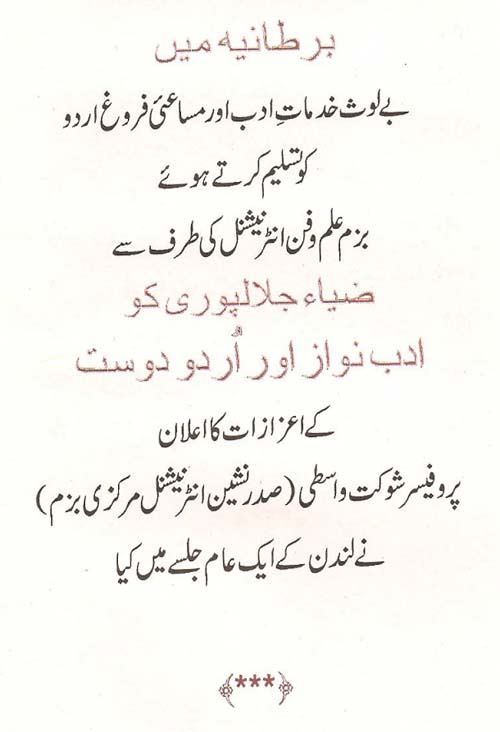 برطانیہ میں
بے لوث خدماتِ ادب اور مساعئی فروغ اردو
کو تسلیم کرتے ہوئے
بزم علم و فن انٹرنیشنل کی طرف سے
ضیاء جلالپوری کو
ادب نواز اور اُردو دوست
کے اعزازات کا اعلان
پروفیسر شوکت واسطی (صدر نشین انٹرنیشنل مرکزی بزم)
نے لندن کے ایک عام جلسے میں کیا
***